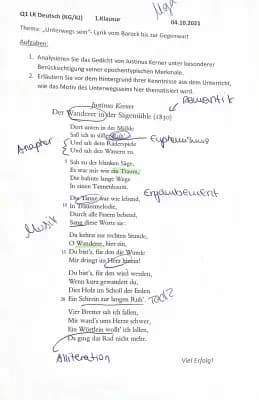 Q1 LK Deutsch (KG/KJ) 1.Klausur 04.10.2021
Thema: „Unterwegs sein"- Lyrik vom Barock bis zur Gegenwart
Aufgaben:
1. Analysieren Sie das Gedicht von Justinus Kerner unter besonderer
Berücksichtigung seiner epochentypischen Merkmale.
2. Erläutern Sie vor dem Hintergrund ihrer Kenntnisse aus dem Unterricht,
wie das Motiv des Unterwegsseins hier thematisiert wird.
Romantik
Justinus Kerner
Der Wanderer in der Sägemühle (1830)
Dort unten in der Mühle
Saß ich in süßer Ruh'
Und sah dem Räderspiele
Und sah den Wassern zu.
Anapher
Euphemismus
5 Sah zu der blanken Säge,
Es war mir wie ein Traum,
Die bahnte lange Wege
In einen Tannenbaum.
Enjambement
Die Tanne war wie lebend,
10 In Trauermelodie,
Durch alle Fasern bebend,
Sang diese Worte sie:
Musik
Du kehrst zur rechten Stunde,
O Wanderer, hier ein,
Du bist's, für den die Wunde
Mir dringt ins Herz hinein!
Du bist's, für den wird werden,
Wenn kurz gewandert du,
Dies Holz im Schoß der Erden
20 Ein Schrein zur langen Ruh'.
Tod?
Vier Bretter sah ich fallen,
Mir ward's ums Herze schwer,
Ein Wörtlein wollt' ich lallen,
Da ging das Rad nicht mehr.
Alliteration
Viel Erfolg!